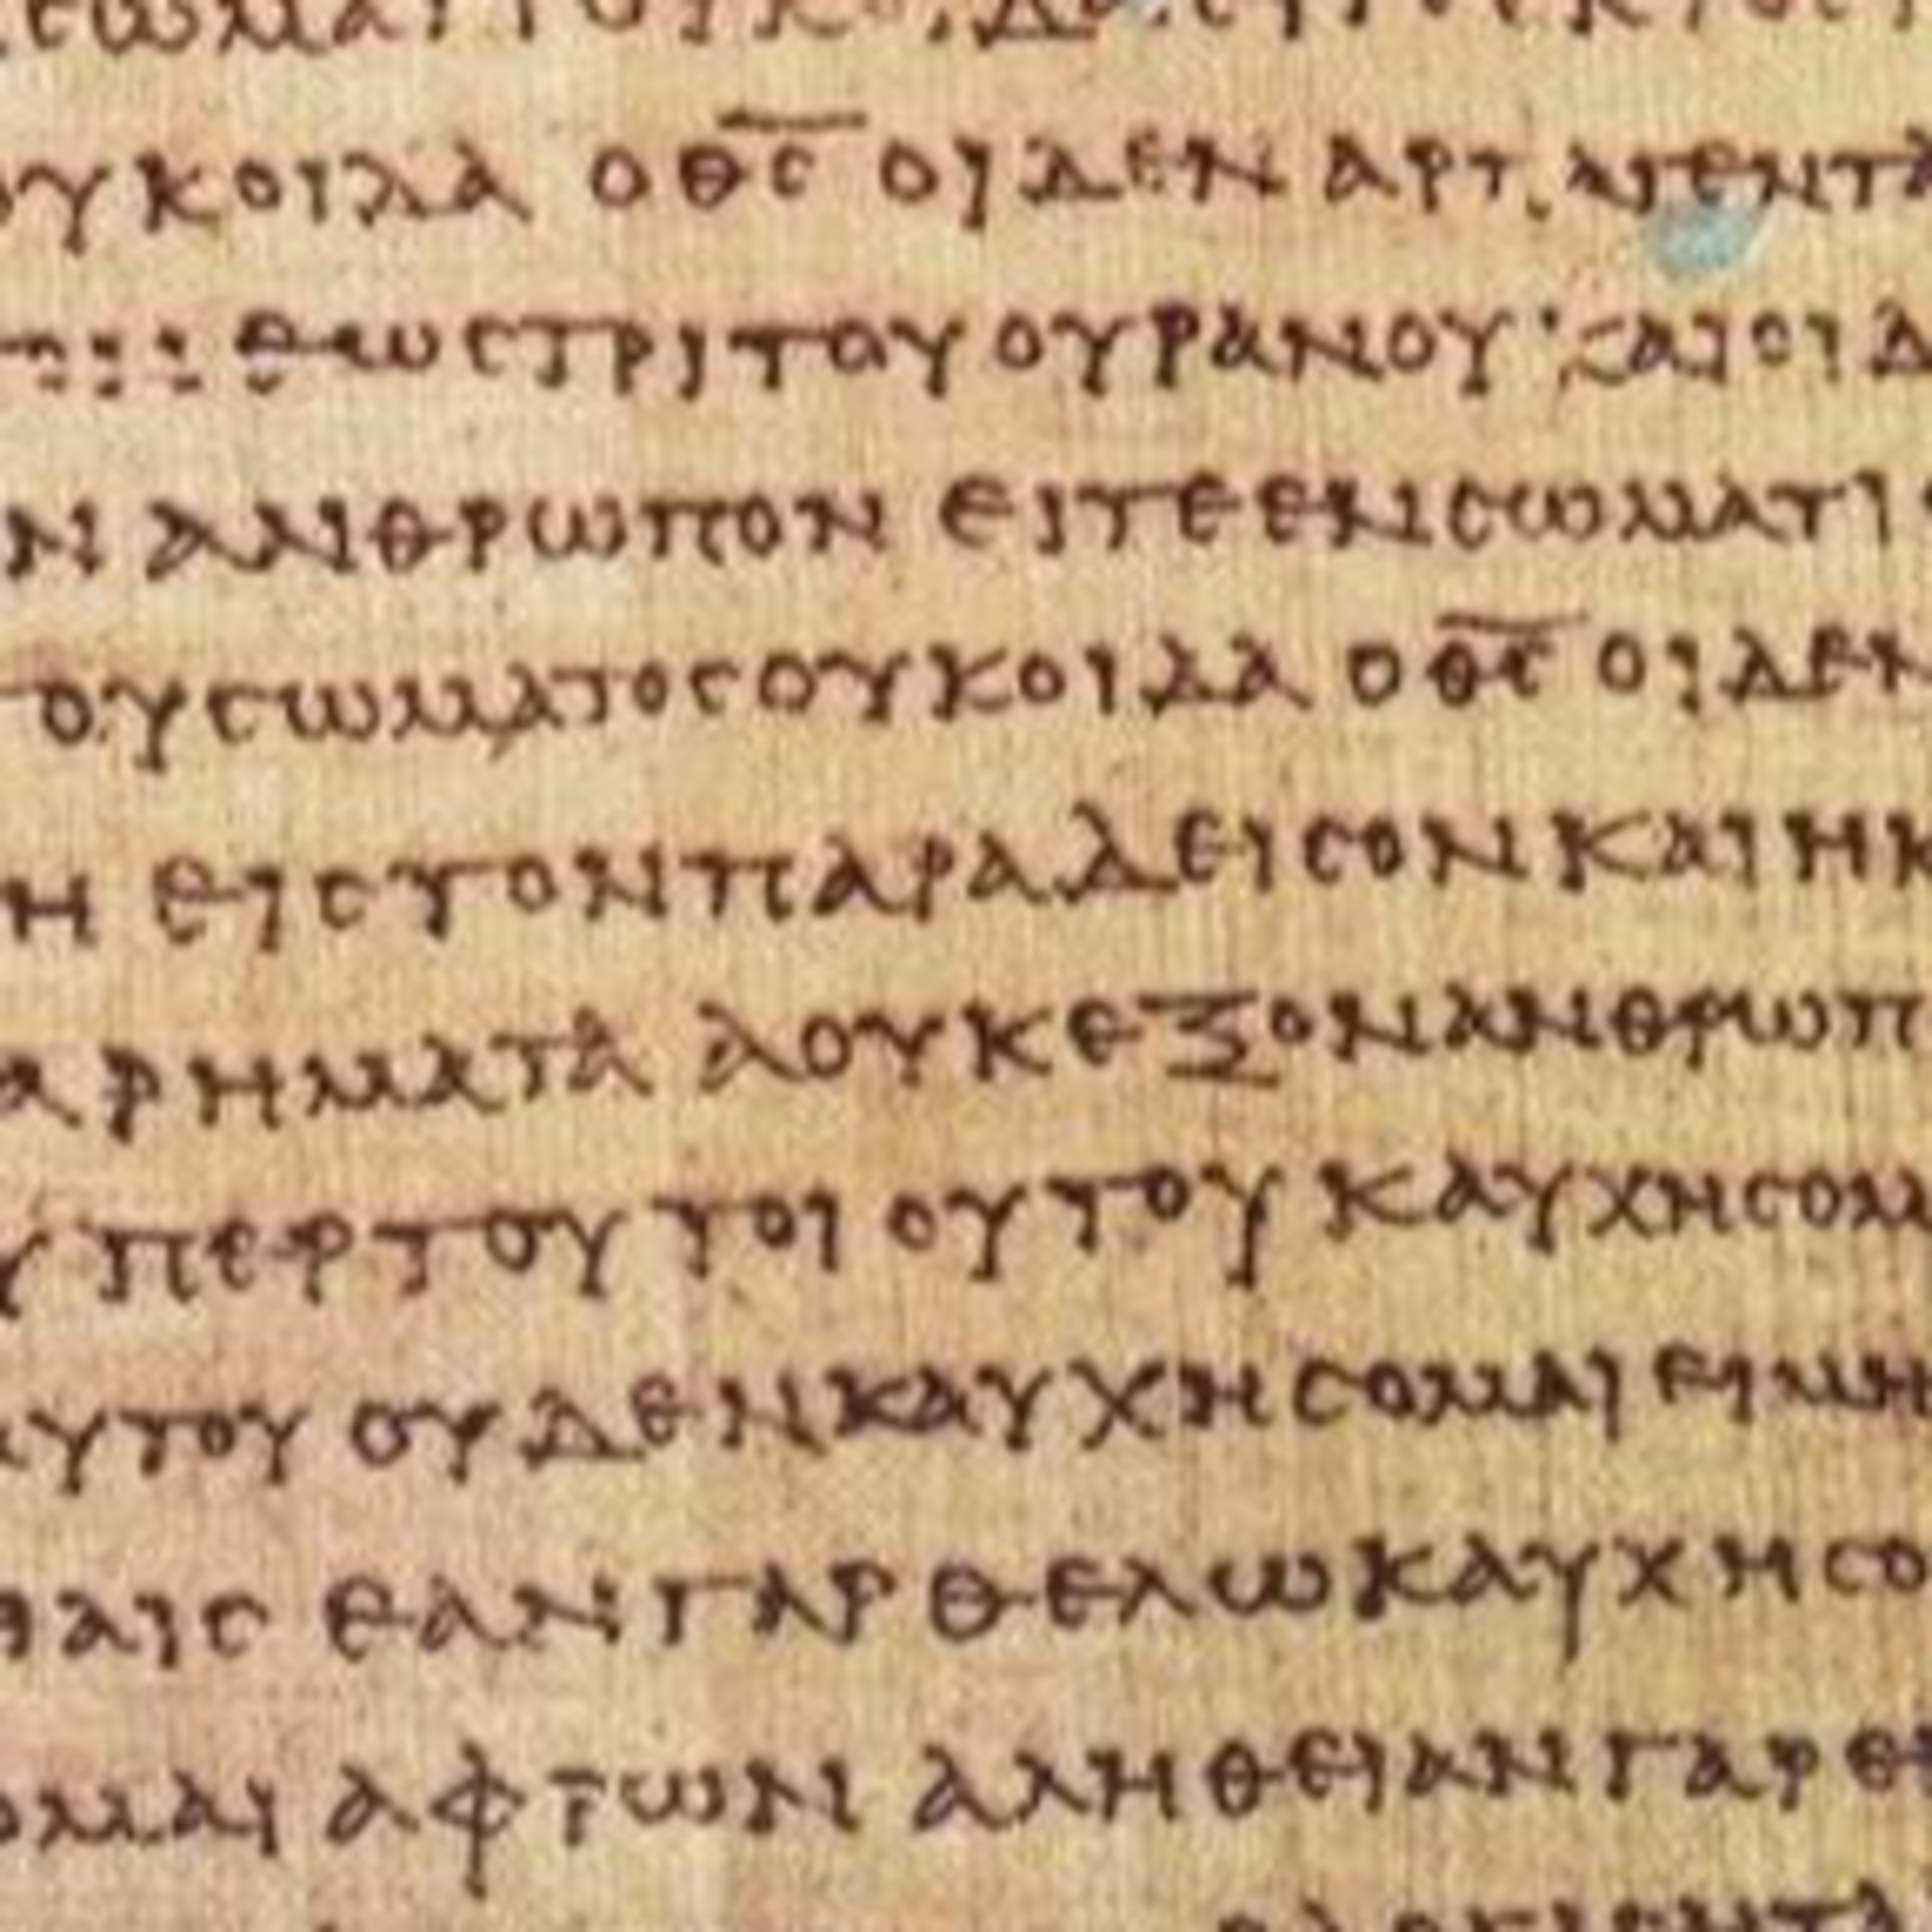 ϲωματι
ουκοιδα ο θ̅ϲ̅ οιδεν αρπαγεντα
εωϲτριτου ουρανου και οιδα
ν ανθρωπον ειτεενϲωματι
ουϲωματοϲουκοιδα ο θ̅ϲ̅ οιδεν
η ειϲτονπαραδειϲονκαιηκ
αρηματα αουκεξονανθρωπ
υπερτουτοιουτου καυχηϲομ
αυτου ουδενκαυχηϲομαι ειμη
αιϲ εανγαρ θελωκαυχηϲο
ομαι αφρων αληθειανγαρε